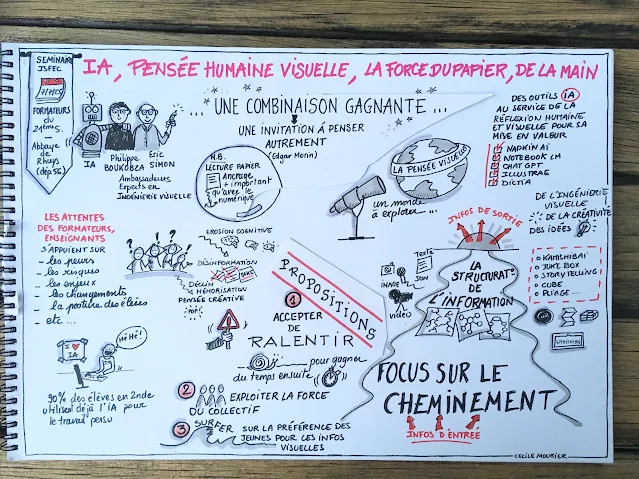 SEMINAIRE
ISFEC
FORMATEURS
DU
2nd degré
Abbaye
de
Rhuys
(dép.56)
IA, PENSÉE HUMAINE VISUELLE, LA FORCE DU PAPIER, DE LA MAIN
... UNE COMBINAISON GAGNANTE ...
UNE INVITATION À PENSER
AUTREMENT
(Edgar Morin)
IA
Philippe
BOUKOBZA
Eric
SIMON
Ambassadeurs
Experts en
INGÉNIERIE VISUELLE
N.B.
LECTURE PAPIER
Ancrage
+ important
qu'avec le
numérique
LA PENSÉE VISUELLE
un monde
à explorer ...
DES OUTILS IA
AU SERVICE DE LA
RÉFLEXION HUMAINE
ET VISUELLE POUR SA
MISE EN VALEUR
NAPKIN AI
NOTEBOOK LM
CHAT GPT
ILLUSTRAE
DICTIA
DE L'INGÉNIERIE
VISUELLE
DE LA CRÉATIVITÉ
DES IDÉES
KAMISHIBAI
JUKE BOX
STORYTELLING
CUBE
PLIAGE...
LES ATTENTES
DES FORMATEURS,
ENSEIGNANTS
S'APPUIENT SUR
- les peurs
- les risques
- les enjeux
- les changements
- la posture des élèves
- etc ...
EROSION COGNITIVE
DÉSINFORMATION
DÉCLIN
MÉMORISATION
PENSÉE CRÉATIVE
I ♥
IA
HÉHÉ!
90% des élèves en 2nde
utilisent déjà l'IA pour
le travail perso
PROPOSITIONS
1 ACCEPTER
DE
RALENTIR
pour gagner
du temps ensuite
2 EXPLOITER LA FORCE
DU COLLECTIF
3 SURFER SUR LA PRÉFÉRENCE DES
JEUNES POUR LES INFOS
VISUELLES
INFOS DE SORTIE
IMAGE
TEXTE
SON
VIDÉO
LA
STRUCTURAT°
DE
L'INFORMATION
FOCUS SUR LE
CHEMINEMENT
INFOS D'ENTRÉE
CECILE MOURIER